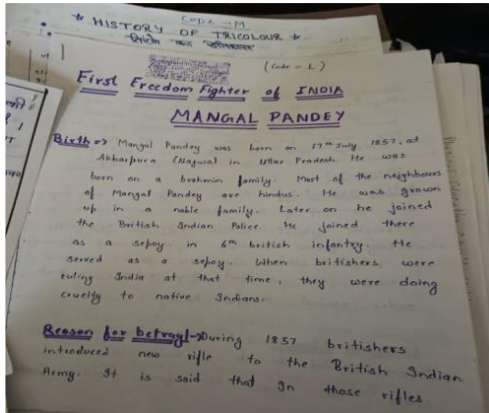 Code - M
* HISTORY OF TRICOLOUR *
(Code - L)
First Freedom Fighter of INDIA
MANGAL PANDEY
Birth => Mangal Pandey was born on 17th July, 1857, at
Akbarpura (Nagwa) in Uttar Pradesh. He was
born on a brahmin family. Most of the neighbours
of Mangal Pandey are hindus. He was grown
up in a noble family. Later on he joined
the British Indian Police. He joined there
as a sepoy in 6th british infantry. He
served as a sepoy. When britishers were
ruling India at that time, they were doing
cruelty to native Indians.
Reason for betrayl -> During 1857 britishers
introduced new rifle to the British Indian
Army. It is said that In those rifles